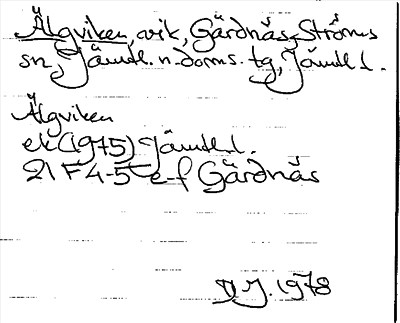 Älgviken, vik, Gärdnäs, Ströms
sn, Jämtl. n. doms. tg, Jämtl. l.
Älgviken
ek (1975) Jämtl. l.
21 F 4-5 e-f Gärdnäs
1978